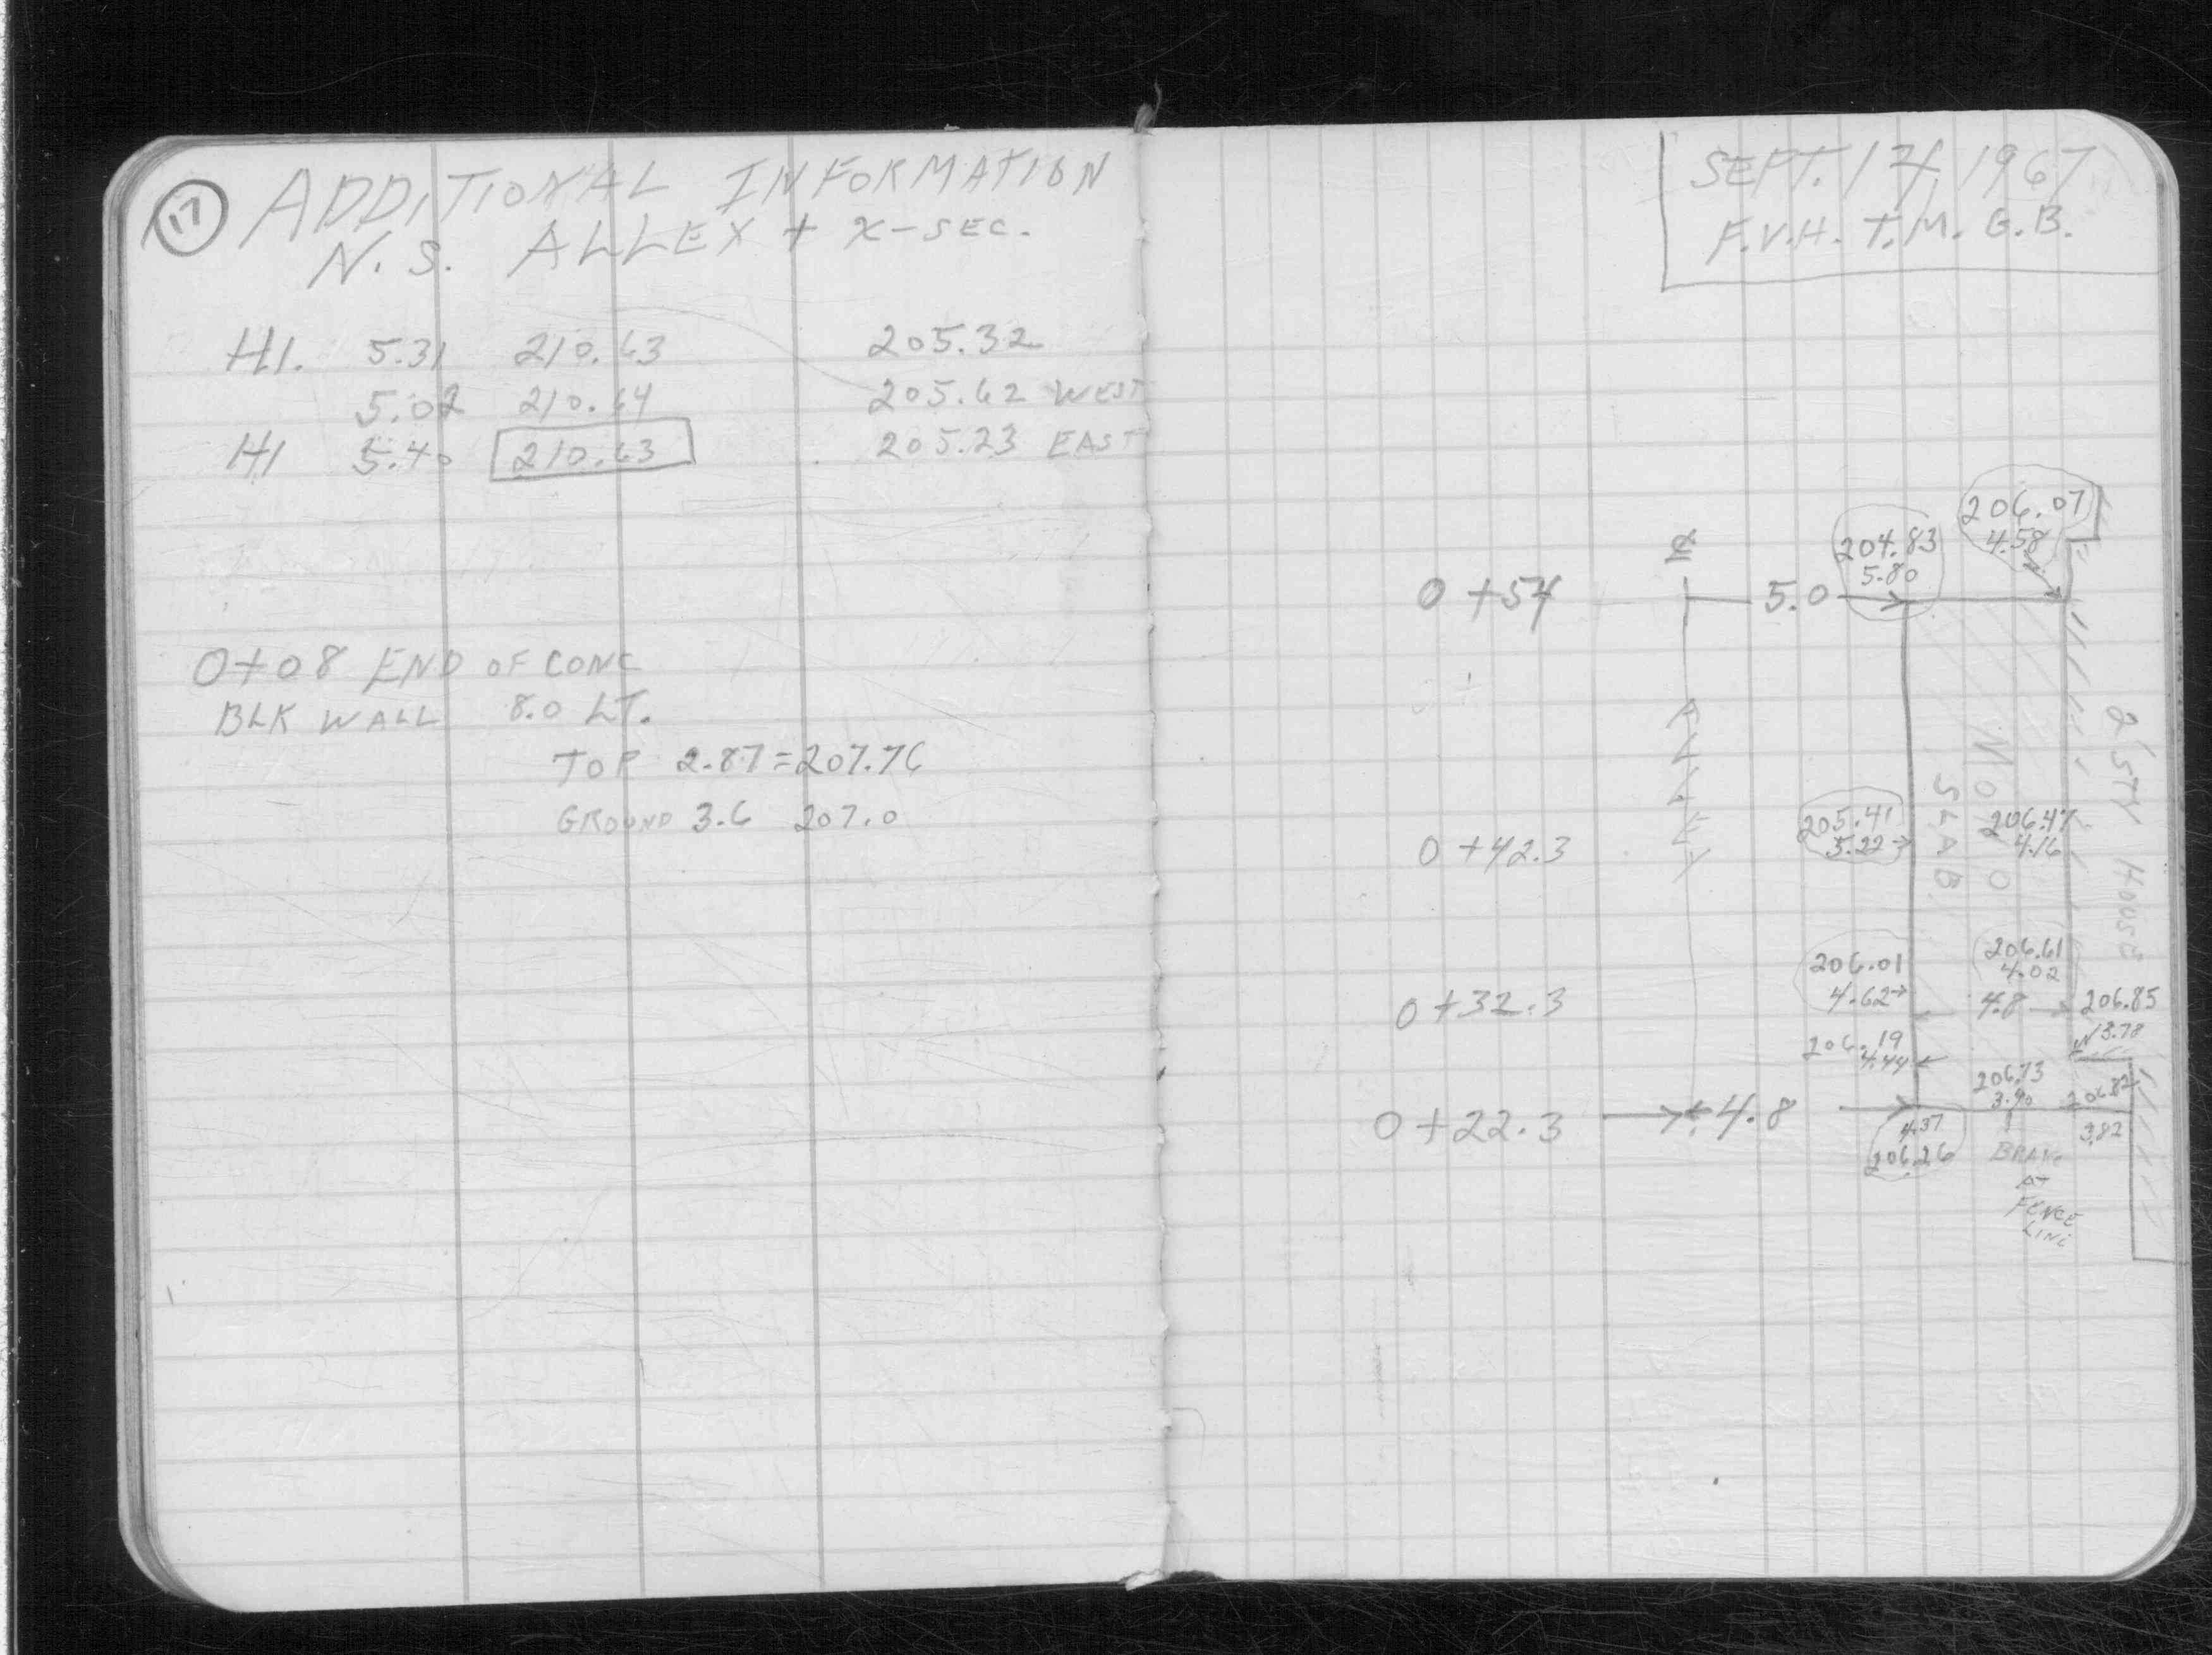 17
ADDITIONAL INFORMATION
N. S. ALLEY + X-SEC.
HI. 5.31 210.63 205.32
5.02 210.64 205.62 WEST
HI 5.40 210.63 205.23 EAST
0+08 END OF CONC
BLK WALL 8.0 LT.
TOP 2.87 = 207.76
GROUND 3.6 207.0
F.V.H. T.M. G.B.
206.07
4.58
204.83
5.80
0+54 5.0
ALLEY
MONO
SLAB
2 STY HOUSE
205.41
5.22
206.47
4.16
0+42.3
206.01
4.62
206.61
4.02
0+32.3
4.8
206.85
3.78
206.19
4.44
206.73
3.90
206.82
3.82
0+22.3 4.8
4.37
206.26
AT
FENCE
LINE